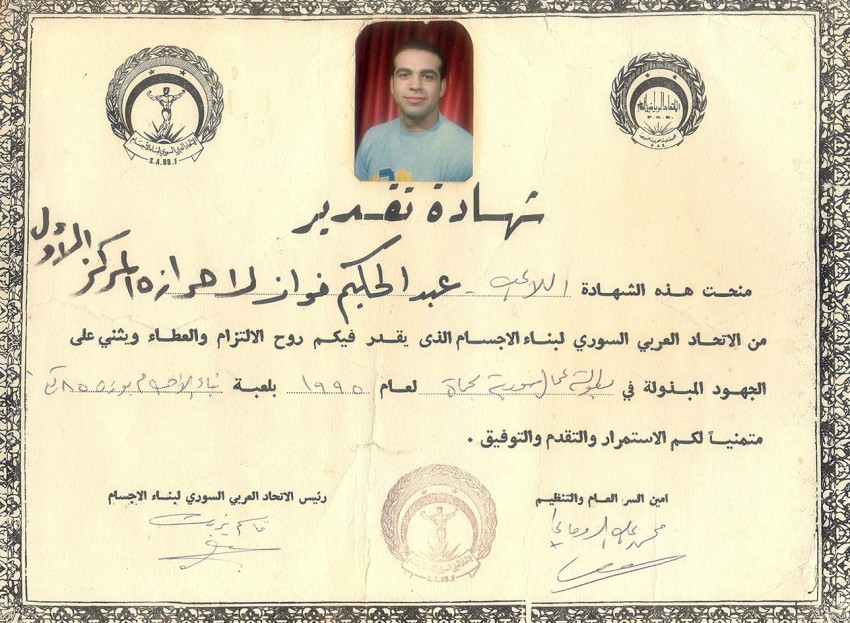 الاتحاد العربي السوري لبناء الاجسام
S.A.BB.F
الاتحاد الرياضي العام
شهادة تقدير
منحت هذه الشهادة اللاعب عبد الحكيم فواز لاحرازه المركز الأول
من الاتحاد العربي السوري لبناء الاجسام الذى يقدر فيكم روح الالتزام والعطاء ويثني على
الجهود المبذولة في بطولة عمال سورية بحماة لعام ١٩٩٥ بلعبة بناء الاجسام بوزن ٨٥ كغ
متمنياً لكم الاستمرار والتقدم والتوفيق .
امين السر العام والتنظيم
رئيس الاتحاد العربي السوري لبناء الاجسام
S.A.BB.F